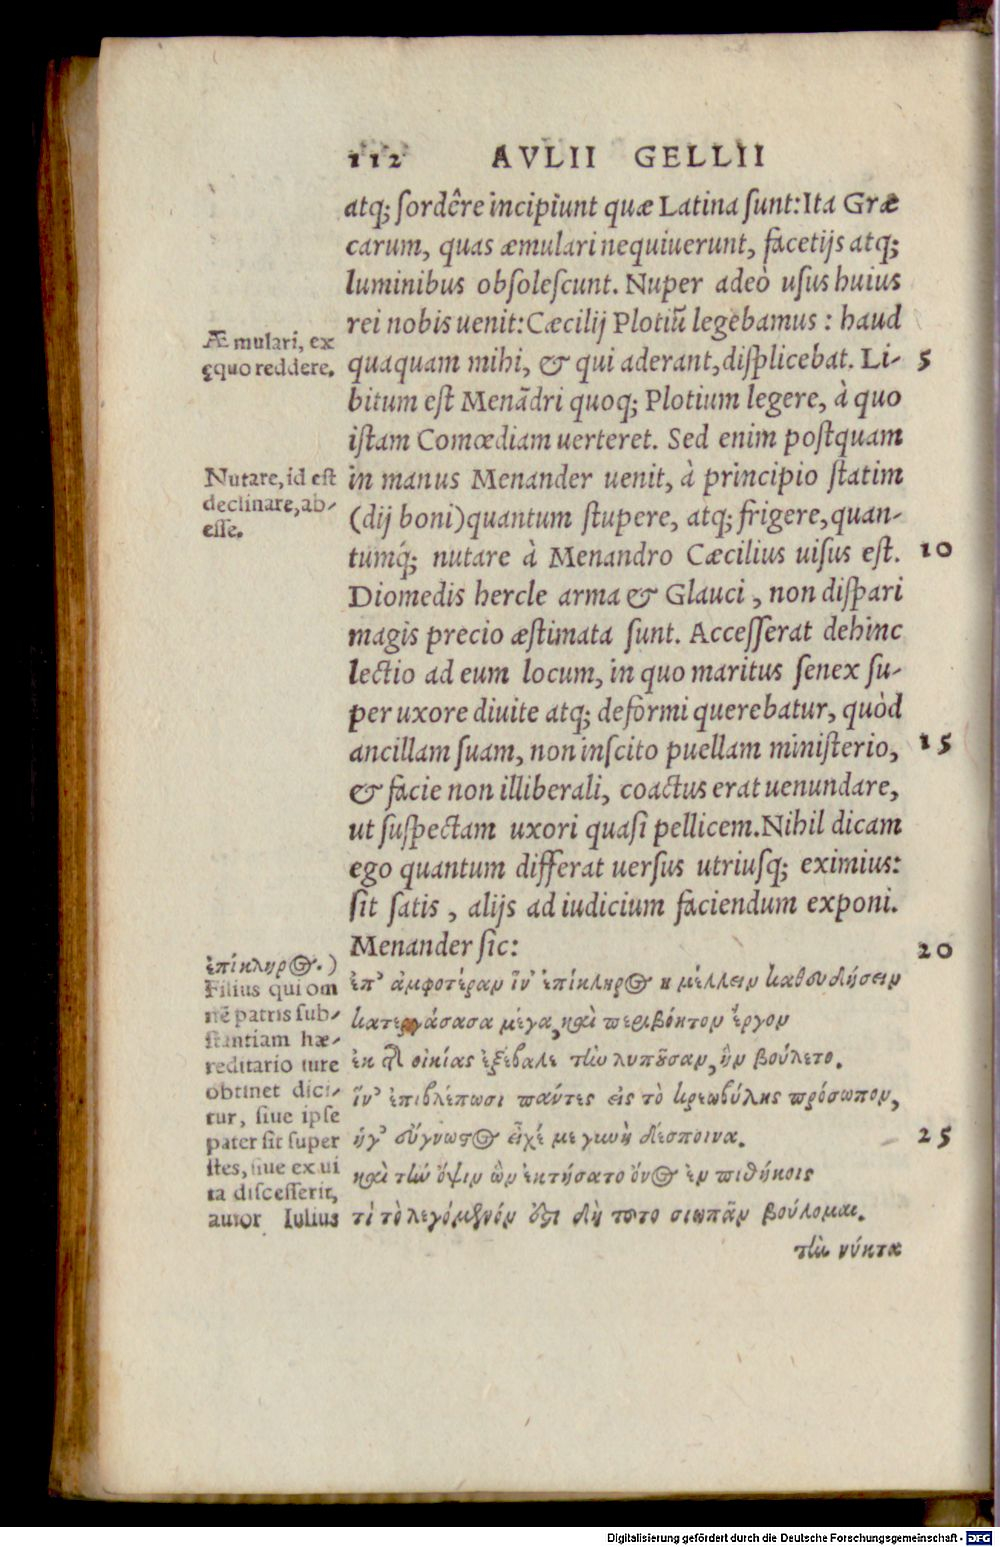 112 AVLII GELLII
atq; sordêre incipiunt quæ Latina sunt: Ita Græ
carum, quas æmulari nequiuerunt, facetijs atq;
luminibus obsolescunt. Nuper adeò usus huius
rei nobis uenit: Cæcilij Plotiũ legebamus : haud
quaquam mihi, & qui aderant, displicebat. Li-
bitum est Menãdri quoq; Plotium legere, à quo
istam Comœdiam uerteret. Sed enim postquam
in manus Menander uenit, à principio statim
(dij boni) quantum stupere, atq; frigere, quan-
tumq́; nutare à Menandro Cæcilius uisus est.
Diomedis hercle arma & Glauci , non dispari
magis precio æstimata sunt. Accesserat dehinc
lectio ad eum locum, in quo maritus senex su-
per uxore diuite atq; deformi querebatur, quòd
ancillam suam, non inscito puellam ministerio,
& facie non illiberali, coactus erat uenundare,
ut suspectam uxori quasi pellicem. Nihil dicam
ego quantum differat uersus utriusq; eximius:
sit satis , alijs ad iudicium faciendum exponi.
Menander sic:
ἐπ' ἀμφοτέραν ἵν' ἐπίκληρος η μέλλειν καθευδήσειν
κατεργάσασα μέγα, καὶ περιβόητον ἔργον
ἐκ τῆς οἰκίας ἐξέβαλε τὴν λυποῦσαν, ἣν βούλετο.
ἵν' ἐπιβλέπωσι πάντες εἰς τὸ κρεωβύλης πρόσωπον,
ἠγ' εὔγνωστος εἶχέ με γυνὴ δέσποινα.
καὶ τὴν ὄψιν ὣν ἐκτήσατο ὄνος ἐν πιθήκοις
τὶ τὸ λεγόμενόν ὅτι δὴ τοῦτο σιωπᾶν βούλομαι.
τὴν νύκτα
Æmulari, ex
ęquo reddere.
Nutare, id est
declinare, ab-
esse.
ἐπίκληρος.)
Filius qui om
nē patris sub-
stantiam hæ-
reditario iure
obtinet dici-
tur, siue ipse
pater sit super
stes, siue ex ui
ta discesserit,
autor Iulius
5
10
15
20
25
Digitalisierung gefördert durch die Deutsche Forschungsgemeinschaft - DFG